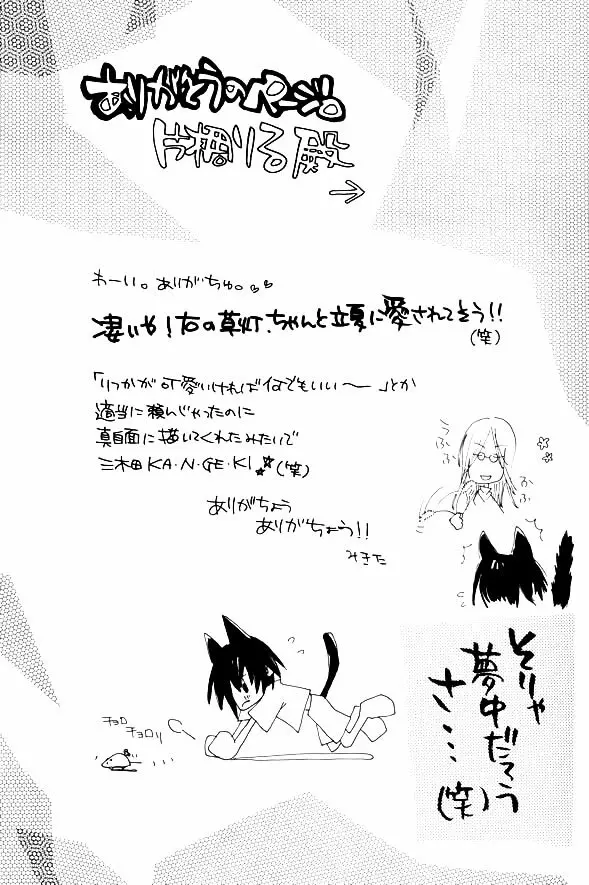 ありがとうのページ。
片桐りる殿
→
わーい。ありがちゅ。♡♡
凄いや!右の草灯、ちゃんと立夏に愛されてそう!!
(笑)
「りつかが可愛いければ何でもいい〜」とか
適当に頼んじゃったのに
真面目に描いてくれたみたいで
三木田KA・N・GE・KI☆(笑)
ありがちょう
ありがちょう!!
みきた
うふふ
うふふ
チョロ
チョロリ
そりゃ
夢中だてう
さ…
(笑)